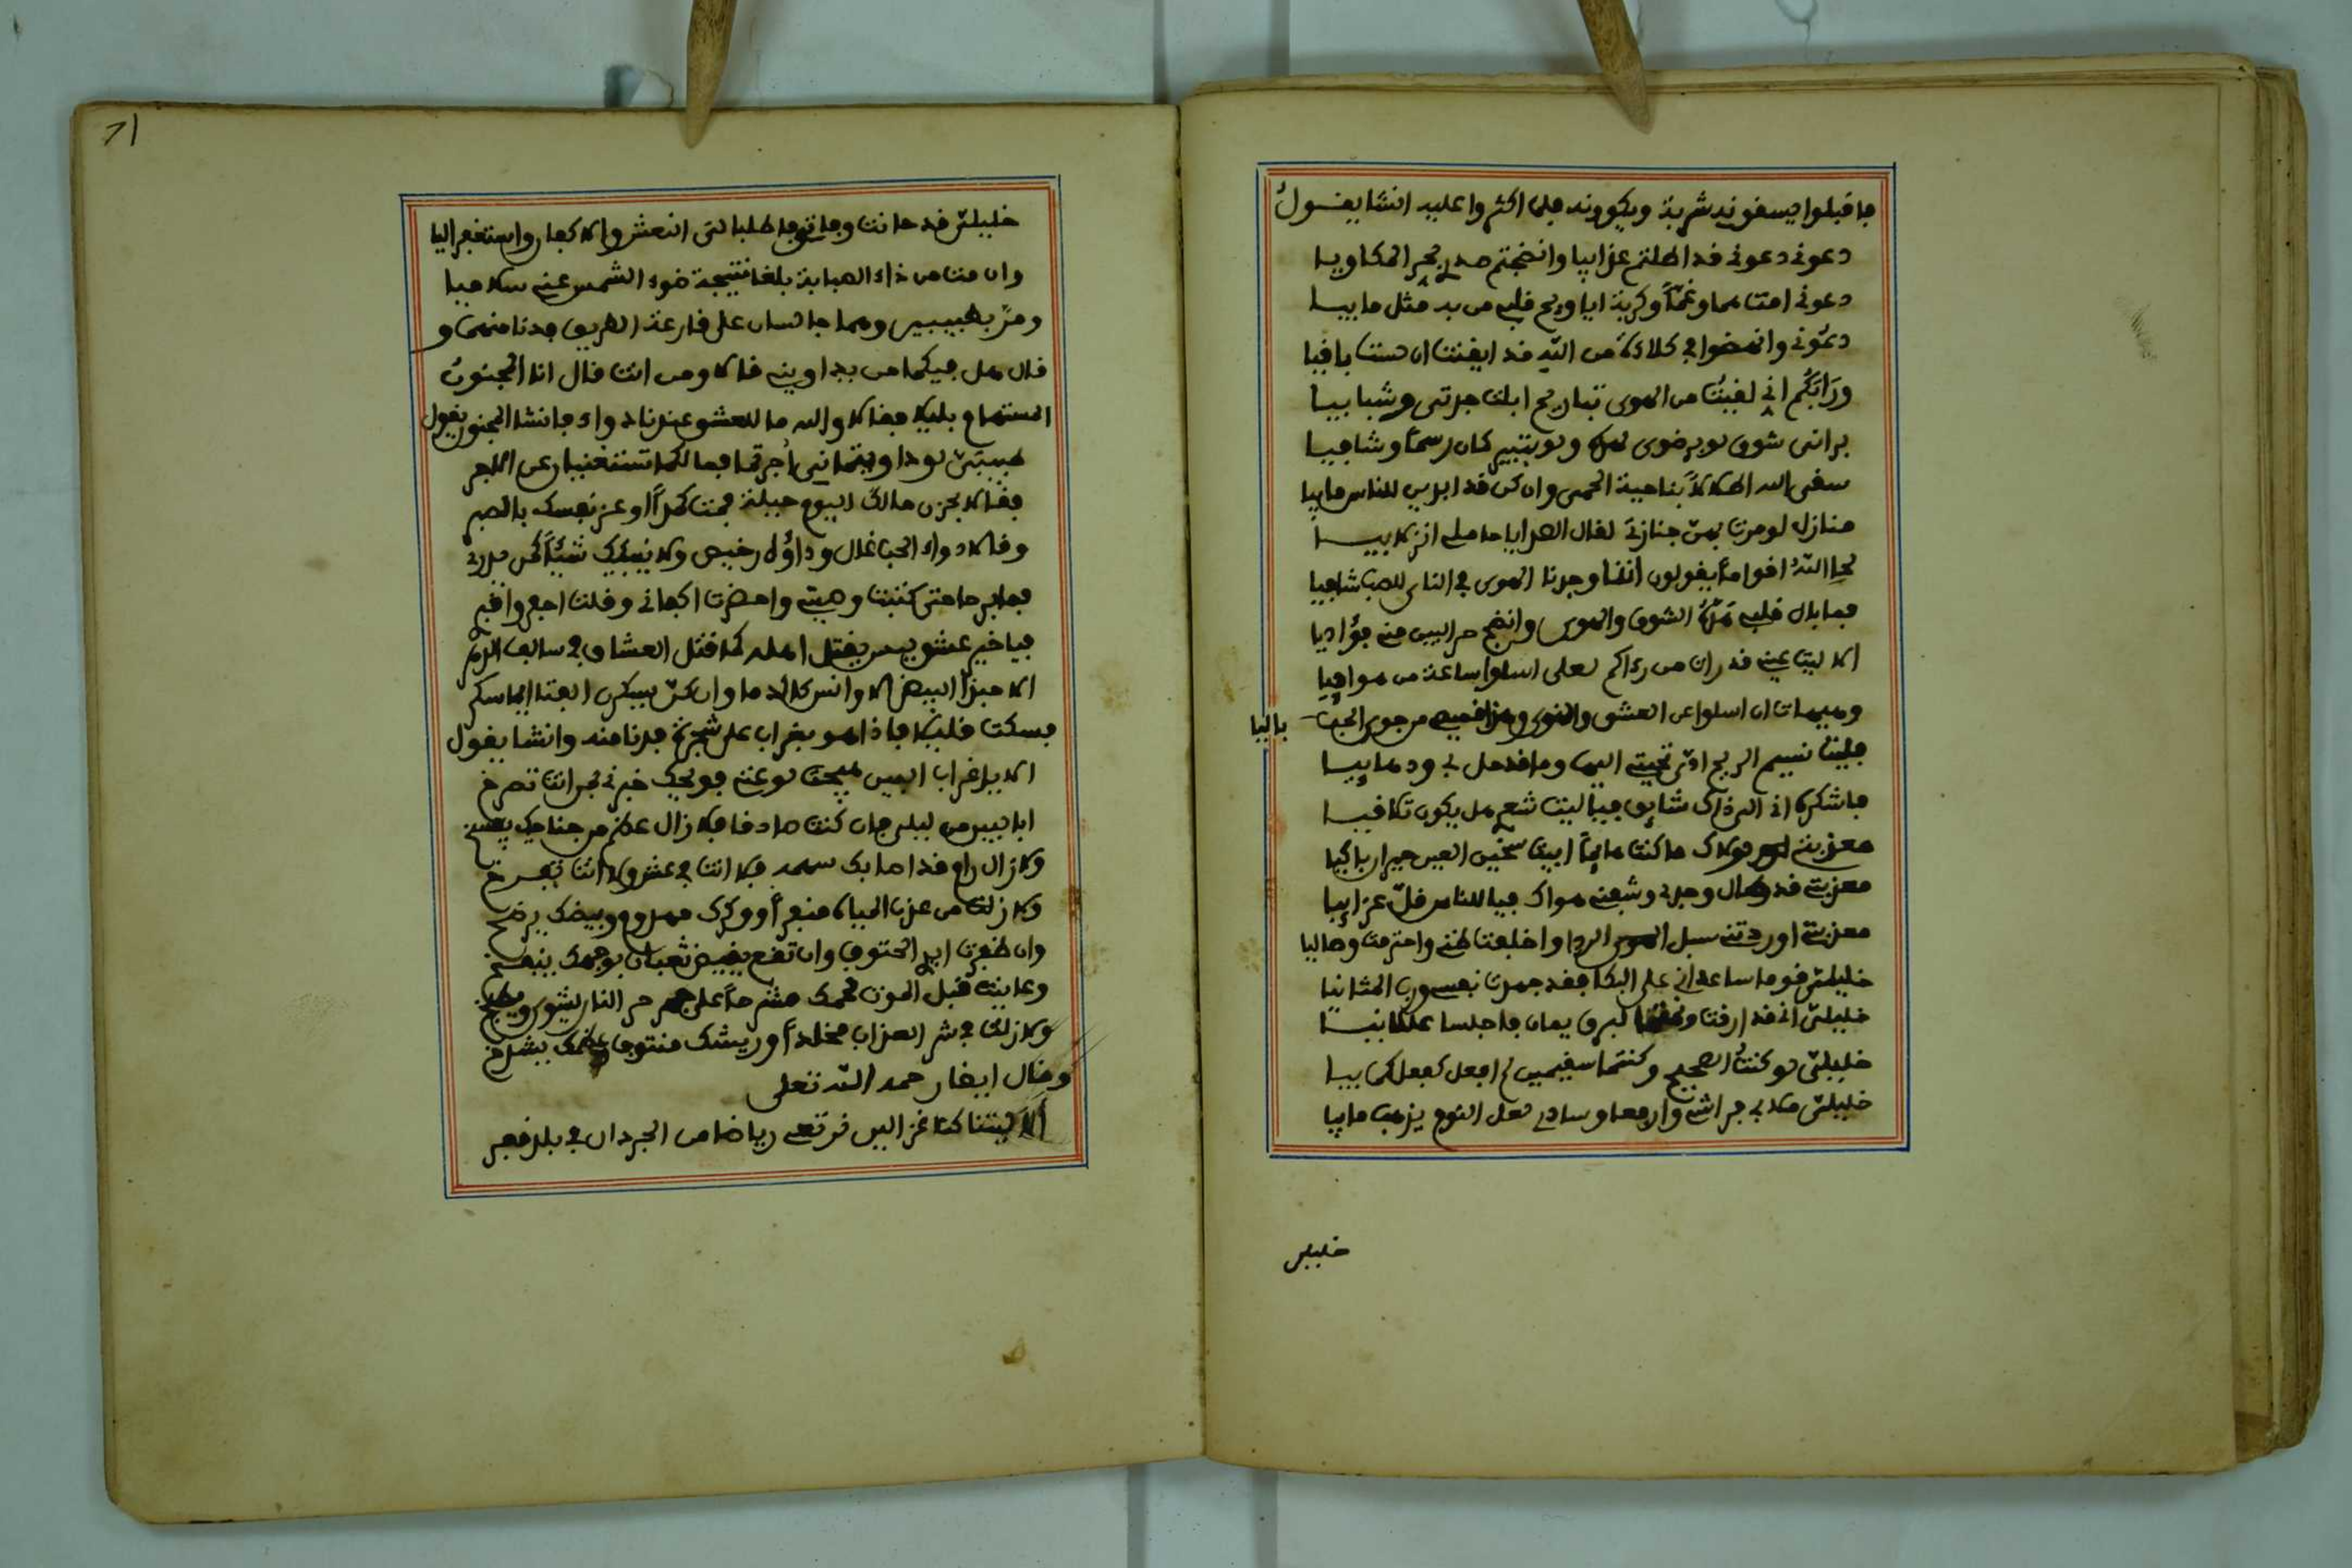 فاقبلوا يسقونه شربة ويكوونه فلما اكثروا عليه انشا يقول
دعوني دعوني قد اطلتم عذابيا وانضجتم جلدي بحر المكاويا
دعوني امت هما وغما وكربة ايا ويح قلبي من به مثل ما بيا
دعوني وانهضوا في كلاءة من الله قد ايقنت ان لست باقيا
وراءكم اني لقيت من الهوى تباريح ابلت جدتي وشبابيا
براني شوق لو برضوى لهده ولو بثبير كان رسما وشافيا
سقى الله اطلالا بناحية الحمى وان كن قد ابدين للناس ما بيا
منازل لو مرت بهن جنازتي لقال الصدى يا حاملي انزلا بيا
لحا الله اقواما يقولون اننا وجدنا الهوى في الناس للصب شافيا
فما بال قلبي هده الشوق والهوى وانضج حر البين مني فؤاديا
الا ليت عيني قد رات من راكم لعلي اسلوا ساعة من هوافيا
وهيهات ان اسلوا عن العشق والهوى وهذا قميصي من جوى الحب
باليا
فليت نسيم الريح ادى تحيتي اليها وما قد حل بي ودهابيا
فاشكره اني الى ذاك شايق فيا ليت شعري هل يكون تلاقيا
معذبتي لولاك ما كنت هايما ابيت سخين العين حيران باكيا
معذبتي قد طال وجدي وشفني هواك فيا للناس قل عزابيا
معذبتي اوردتني سبل الردا واخلفت ظني واحترمت وصاليا
خليلي قوما ساعداني على البكا فقد جهدت نفسي ورب المثانيا
خليلي اني قد ارقت ونمتما لبرق يمان فاجلسا عللانيا
خليلي لو كنت الصحيح وكنتما سقيمين لم افعل كفعلكما بيا
خليلي مدا لي فراشي وارفعا وسادي لعل النوم يذهب ما بيا
خليلي
71
خليلي قد حانت وفاتي فاطلبا لي النعش والاكفان واستغفرا ليا
وان مت من داء الصبابة بلغا نتيجة ضوء الشمس عني سلاميا
ومر بطبيبين وهما جالسان على قارعة الطريق فدنا منهما و
قال هل فيكما من يداويني قالا ومن انت قال انا المجنون
المستهام بليلى فقالا والله ما للعشق عندنا دواء فانشا المجنون يقول
طبيبي لو داويتماني اجرتما فما لكما تستغنيان عن الاجر
فقالا بحزن مالك اليوم حيلة فمت كمدا او عز نفسك بالصبر
وقالا دواء الحب غال وداؤه رخيص ولا ينبيك شيئا كمن يدري
فما برحا حتى كتبت وصيتي واحضرت اكفاني وقلت احفروا قبر
فيا خير عشق ليس يقتل اهله كما قتل العشاق في سالف الدهر
الا حبذا البيض الاوانس كالدما وان كن يسكرن الفتا ايما سكر
فسكت قليلا فاذا هو بغراب على شجرة فدنا منه وانشا يقول
الا يا غراب البين هيجت لوعتي فويحك خبرني بما انت تصرخ
ابا لبين من ليلى فان كنت صادقا فلا زال عظم من جناحك يفسخ
ولا زال رام قد اصابك سهمه فلا انت في عش ولا انت تفرخ
ولا زلت من عذب المياه منفرا ووكرك مهدوم وبيضك يرضخ
وان طفرت ايدي الحتوف وان تقع يفيض ثعبان بوجهك ينفخ
وعاينت قبل الموت لحمك مشرحا على حر جمر النار يشوى ويطبخ
ولا زلت في شر العذاب مخلدا وريشك منتوف ولحمك يشدخ
وقال ايضا رحمه الله تعلى
الا ليتنا كنا غزالين نرتعي رياضا من الحوذان في بلد قفر